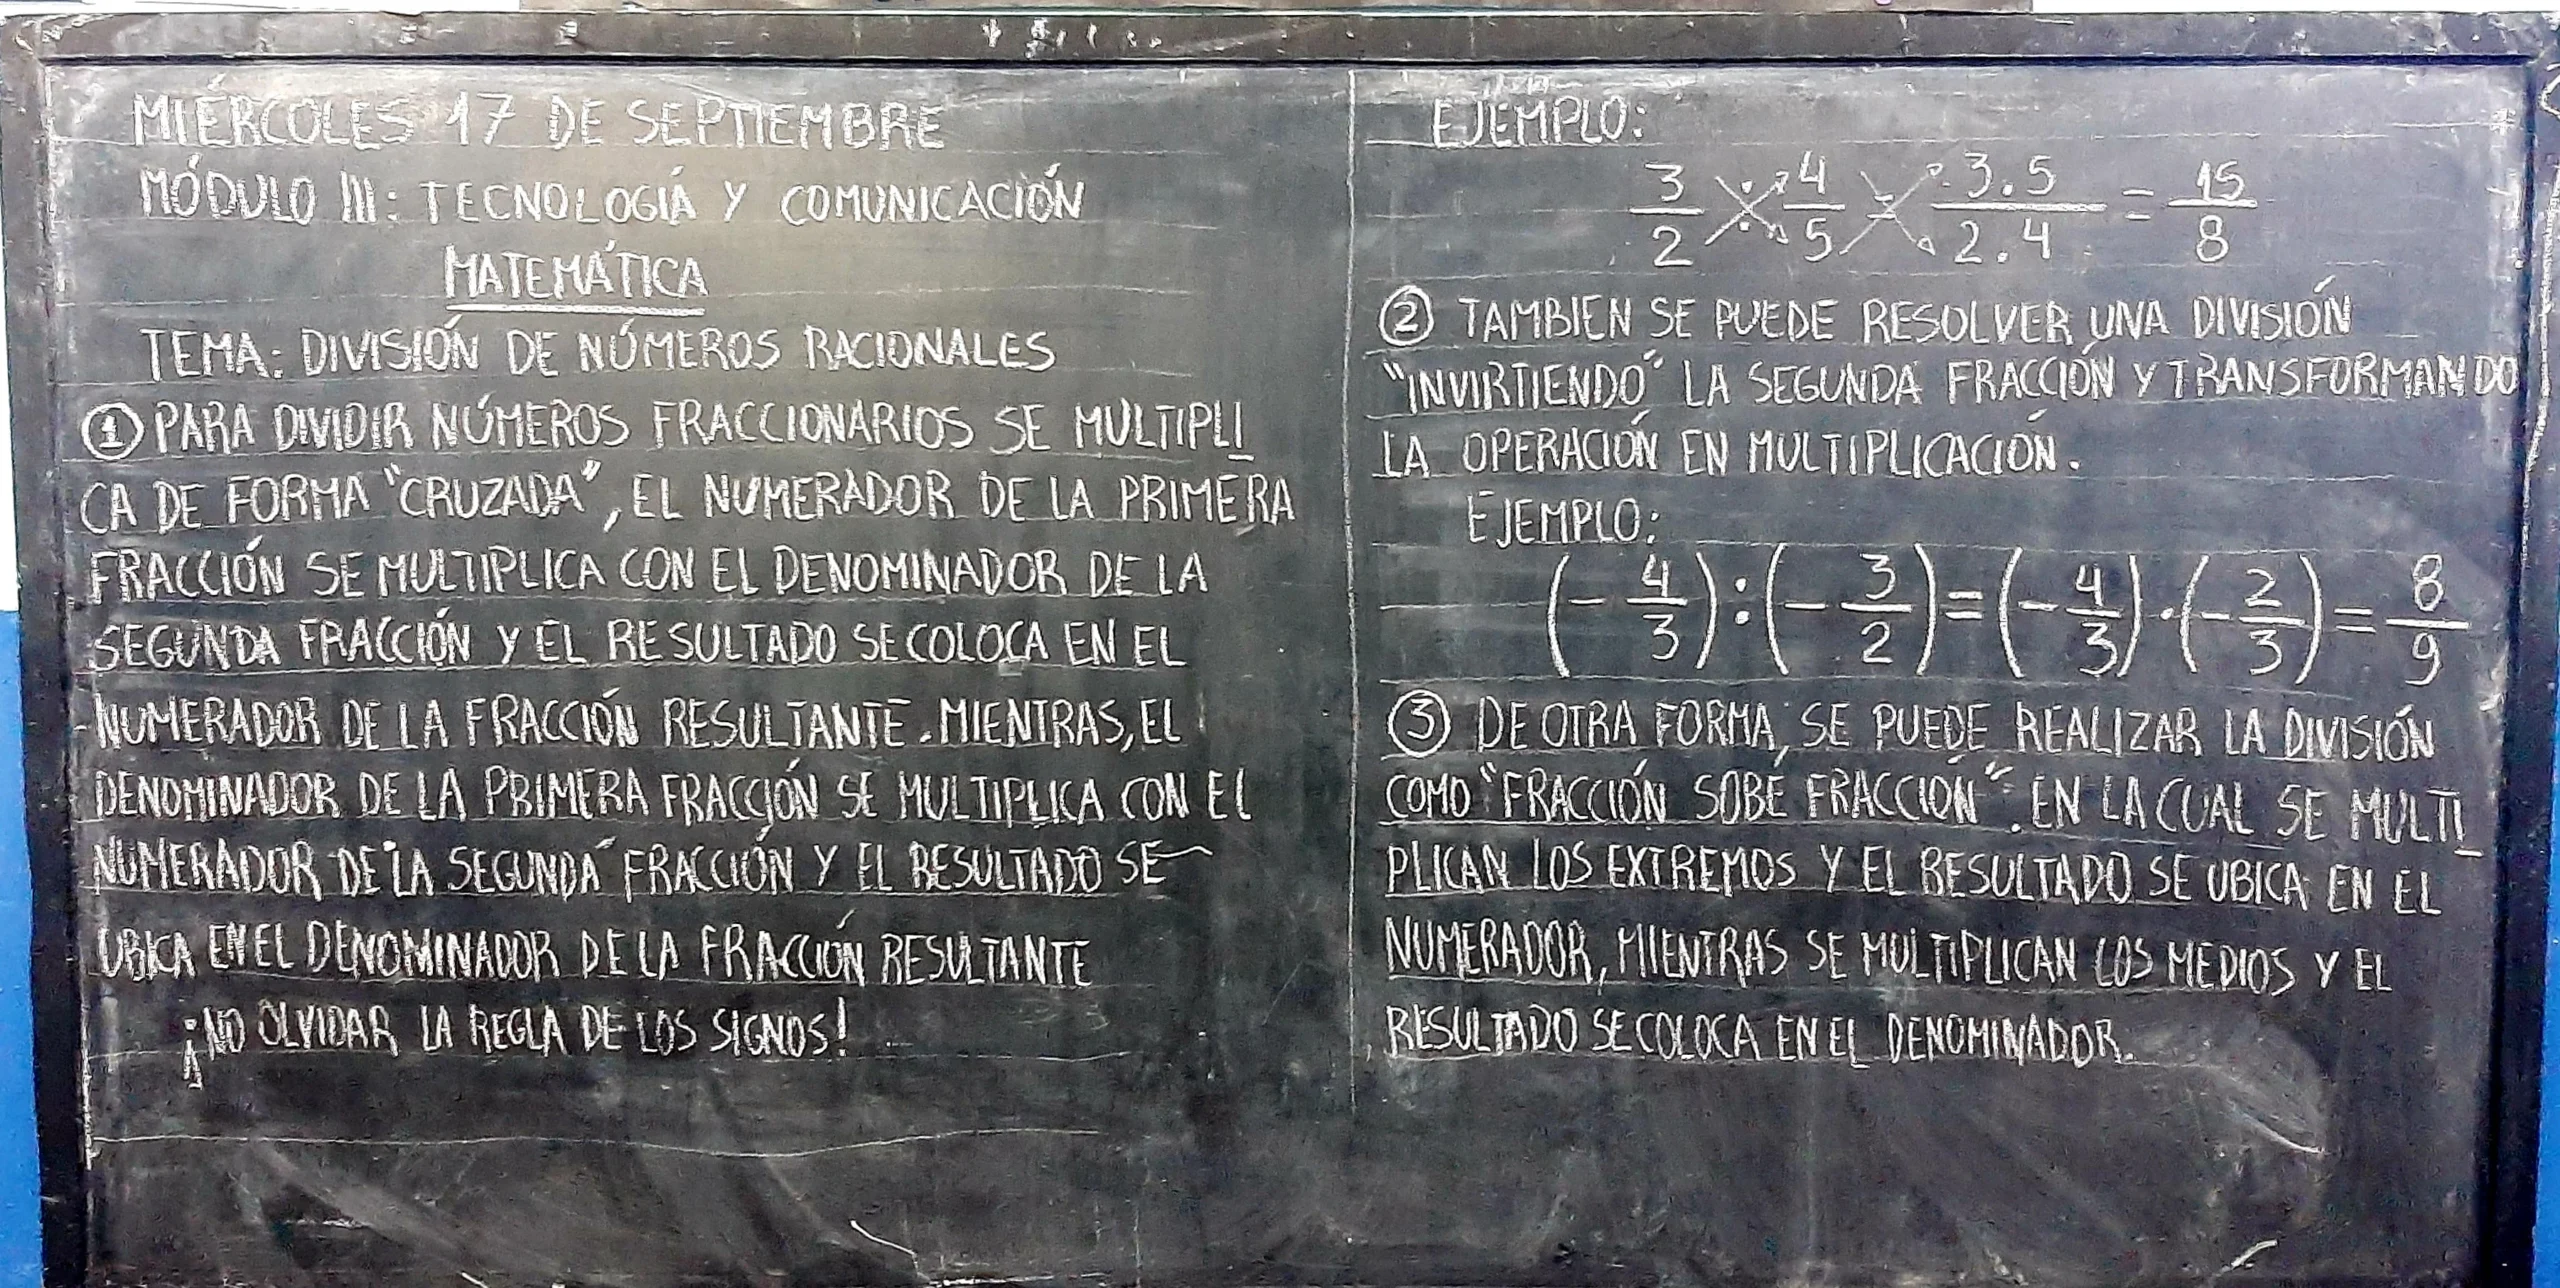 MIÉRCOLES 17 DE SEPTIEMBRE
MÓDULO III: TECNOLOGÍA Y COMUNICACIÓN
MATEMÁTICA
TEMA: DIVISIÓN DE NÚMEROS RACIONALES
① PARA DIVIDIR NÚMEROS FRACCIONARIOS SE MULTIPLI
CA DE FORMA "CRUZADA", EL NUMERADOR DE LA PRIMERA
FRACCIÓN SE MULTIPLICA CON EL DENOMINADOR DE LA
SEGUNDA FRACCIÓN Y EL RESULTADO SE COLOCA EN EL
NUMERADOR DE LA FRACCIÓN RESULTANTE. MIENTRAS, EL
DENOMINADOR DE LA PRIMERA FRACCIÓN SE MULTIPLICA CON EL
NUMERADOR DE LA SEGUNDA FRACCIÓN Y EL RESULTADO SE
UBICA EN EL DENOMINADOR DE LA FRACCIÓN RESULTANTE
¡NO OLVIDAR LA REGLA DE LOS SIGNOS!
EJEMPLO:
3/2 : 4/5 = 3.5/2.4 = 15/8
② TAMBIEN SE PUEDE RESOLVER UNA DIVISIÓN
"INVIRTIENDO" LA SEGUNDA FRACCIÓN Y TRANSFORMANDO
LA OPERACIÓN EN MULTIPLICACIÓN.
EJEMPLO:
(-4/3):(-3/2)=(-4/3).(-2/3)=8/9
③ DE OTRA FORMA, SE PUEDE REALIZAR LA DIVISIÓN
COMO "FRACCIÓN SOBE FRACCIÓN". EN LA CUAL SE MULTI
PLICAN LOS EXTREMOS Y EL RESULTADO SE UBICA EN EL
NUMERADOR, MIENTRAS SE MULTIPLICAN LOS MEDIOS Y EL
RESULTADO SE COLOCA EN EL DENOMINADOR.